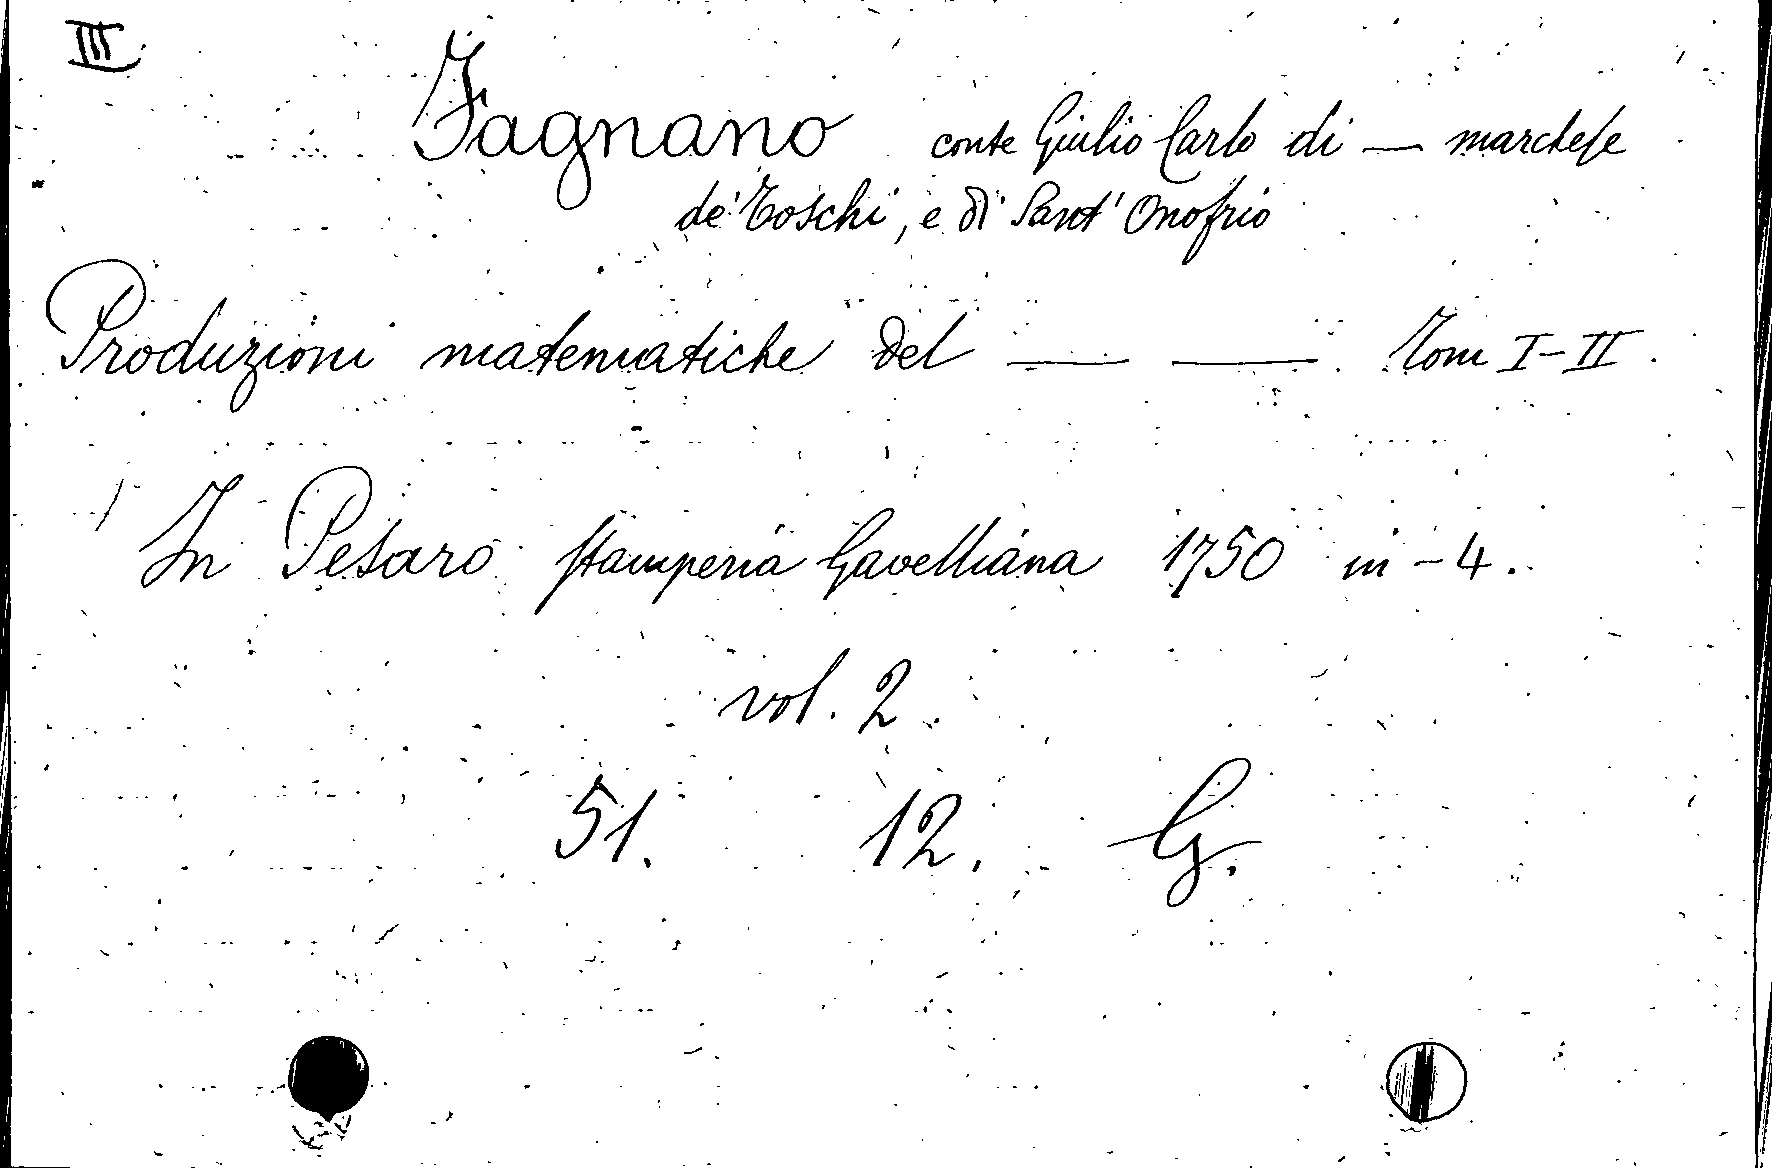 III
Fagnano conte Giulio Carlo di — marchese
de' Toschi, e di Sant' Onofrio
Produzioni matematiche del — — Tomi I-II.
In Pesaro stamperia Gavelliana 1750 in-4.
vol. 2.
51. 12. G.